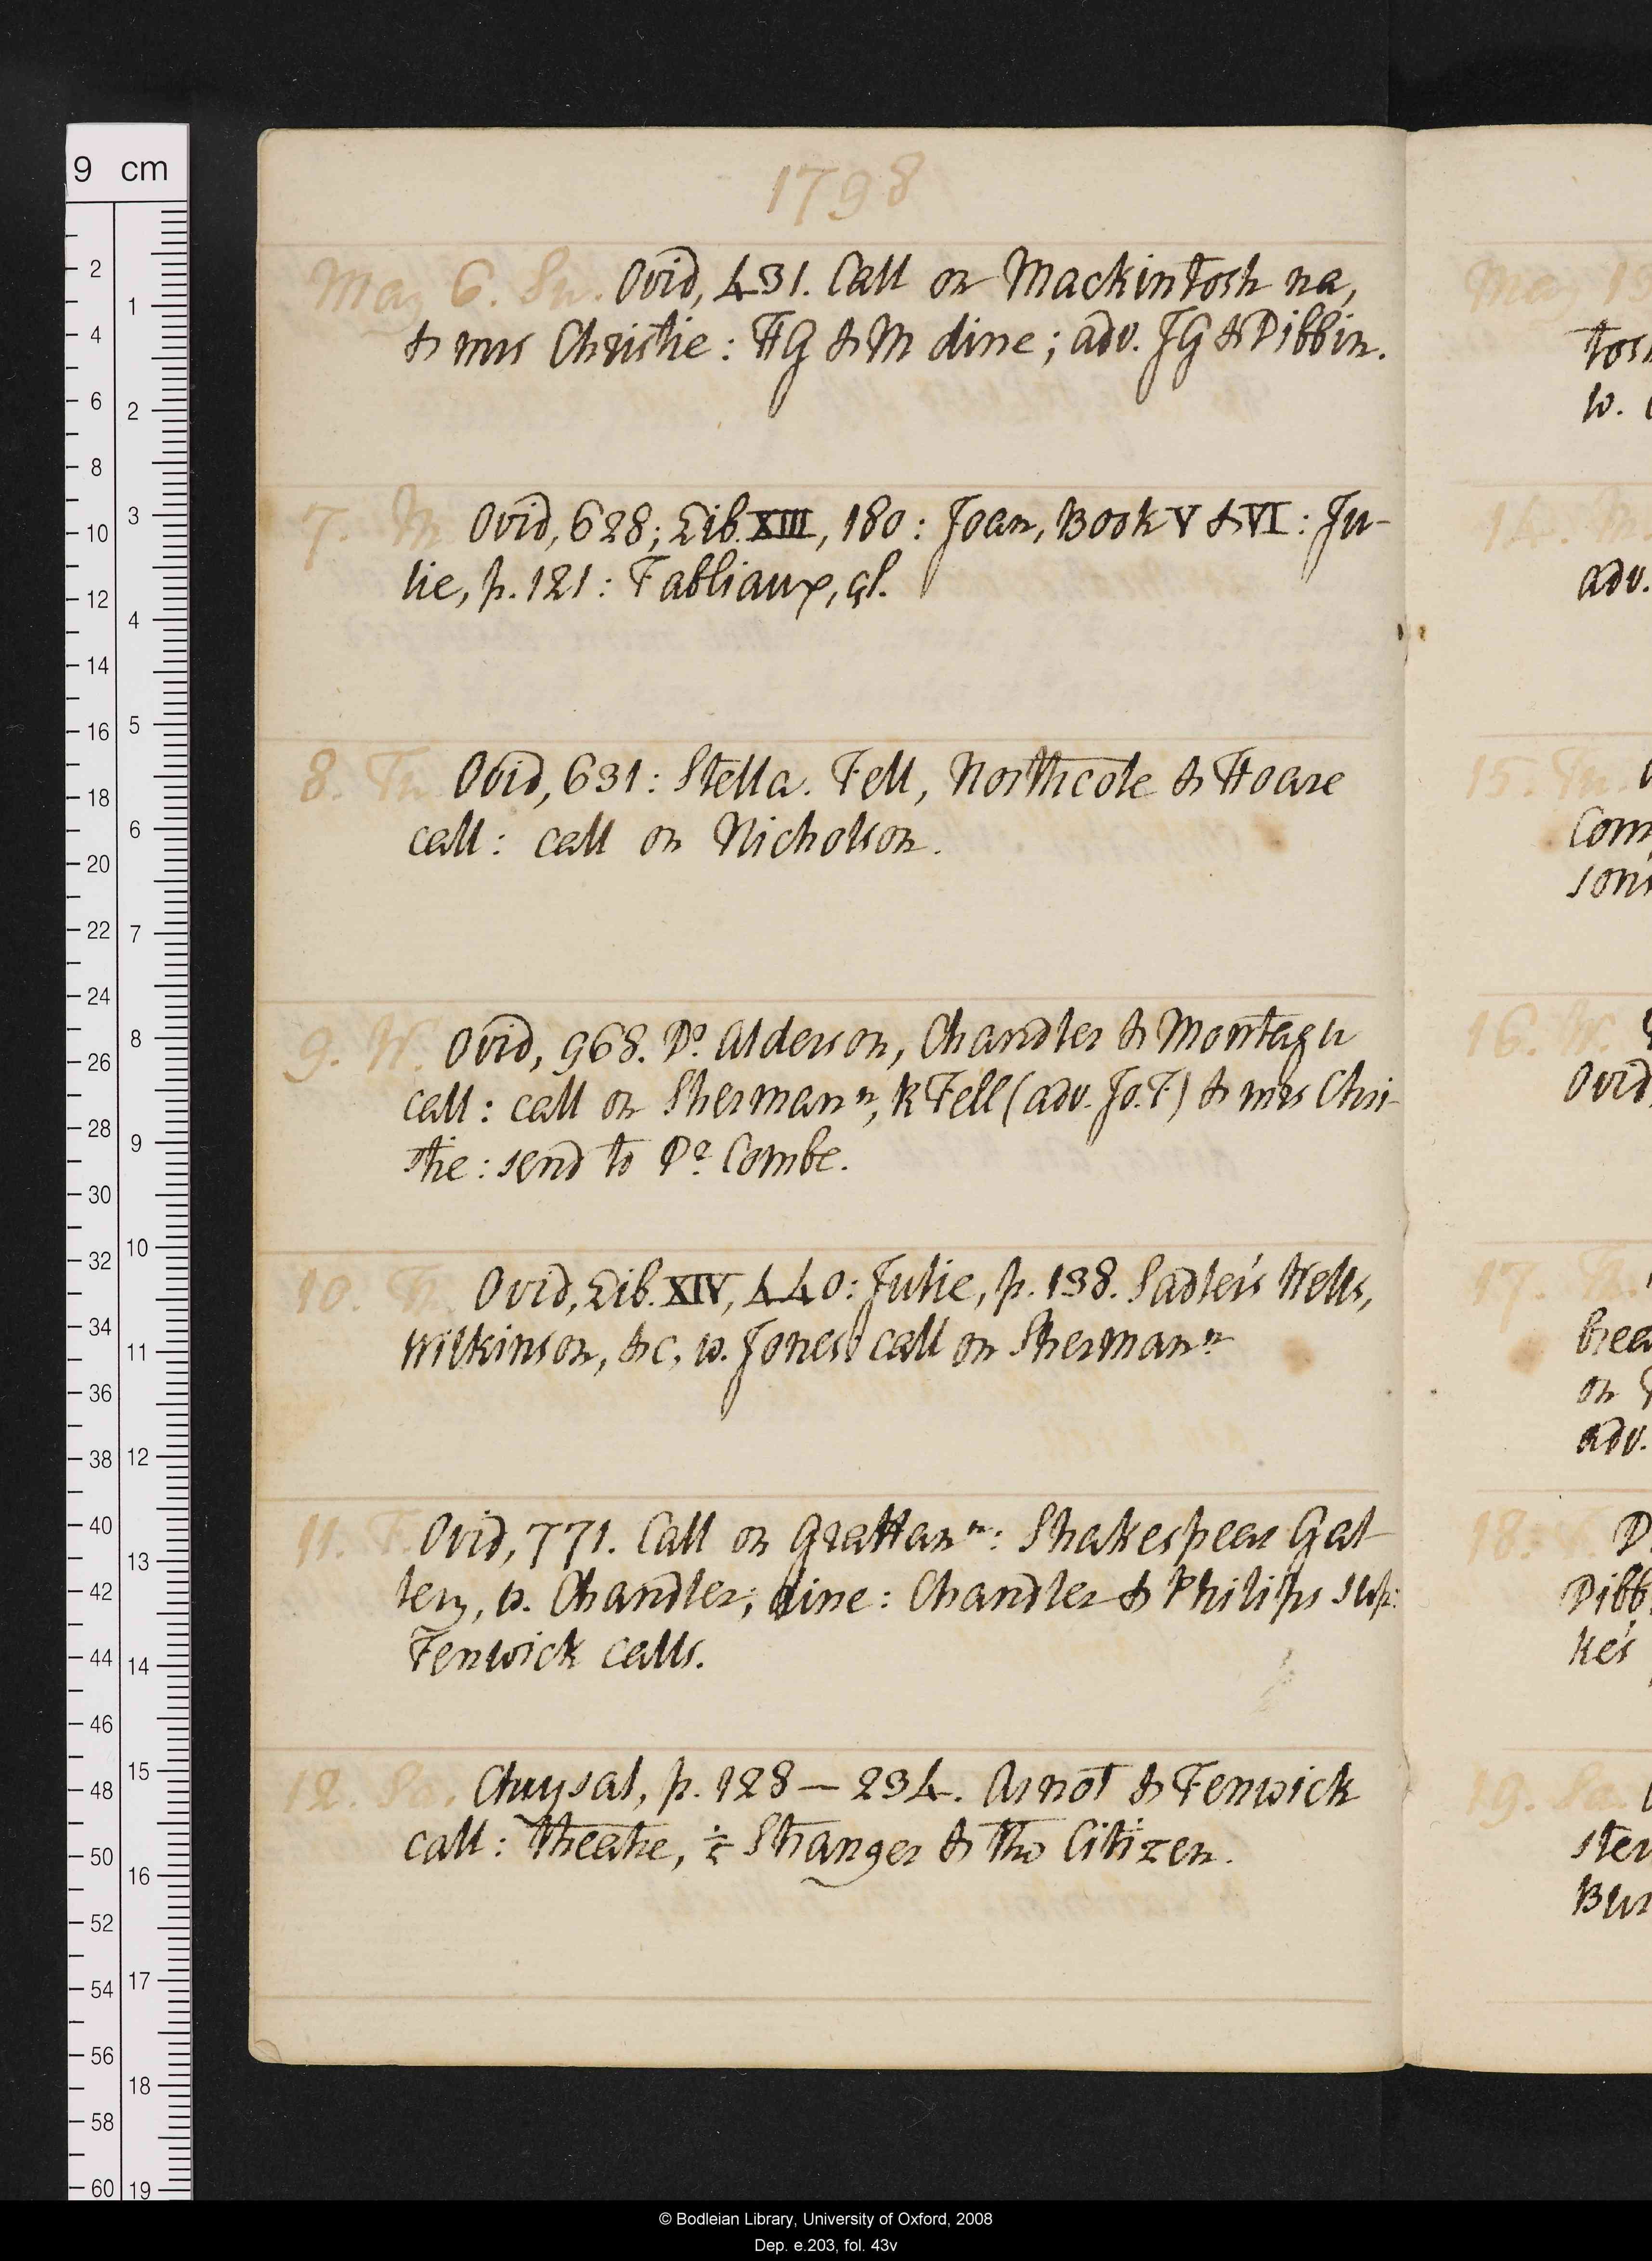 1798
May 6. Su. Ovid, 431. Call on Mackintosh na,
& mrs Christie: HG & M dine; adv. JG & Dibbin.
7. M Ovid, 628; Lib. XIII, 180: Joan, Book V & VI: Ju-
lie, p. 121: Fabliaux, çl.
8. Tu Ovid, 631: Stella. Fell, Northcote & Hoare
call: call on Nicholson.
9. W. Ovid, 968. Dr. Alderson, Chandler & Montagu
call: call on Sherman n, k Fell (adv. Jo. F.) & mrs Chri-
stie: send to Dr. Combe.
10. Th. Ovid, Lib. XIV, 440: Julie, p. 138. Sadler's Wells,
Wilkinson, &c, w. Jones: call on Sherman n.
11. F. Ovid, 771. Call on Grattan n: Shakespear Gal-
lery, w. Chandler; dine: Chandler & Philips sup:
Fenwick calls.
12. Sa. Chrysal, p. 128 — 234. Arnot & Fenwick
call: theatre, ½ Stranger & Citizen.
Ma 13
tosh
w.
14. M.
adv.
15. Tu.
16. W.
Ovid
17. Th.
on
adv.
18.
Dibb
ke's
19. Sa.
9 cm
2
4
6
8
10
12
14
16
18
20
22
24
26
28
30
32
34
36
38
40
42
44
46
48
50
52
54
56
58
60
1
2
3
4
5
6
7
8
9
10
11
12
13
14
15
16
17
18
19
© Bodleian Library, University of Oxford, 2008
Dep. e.203, fol. 43v